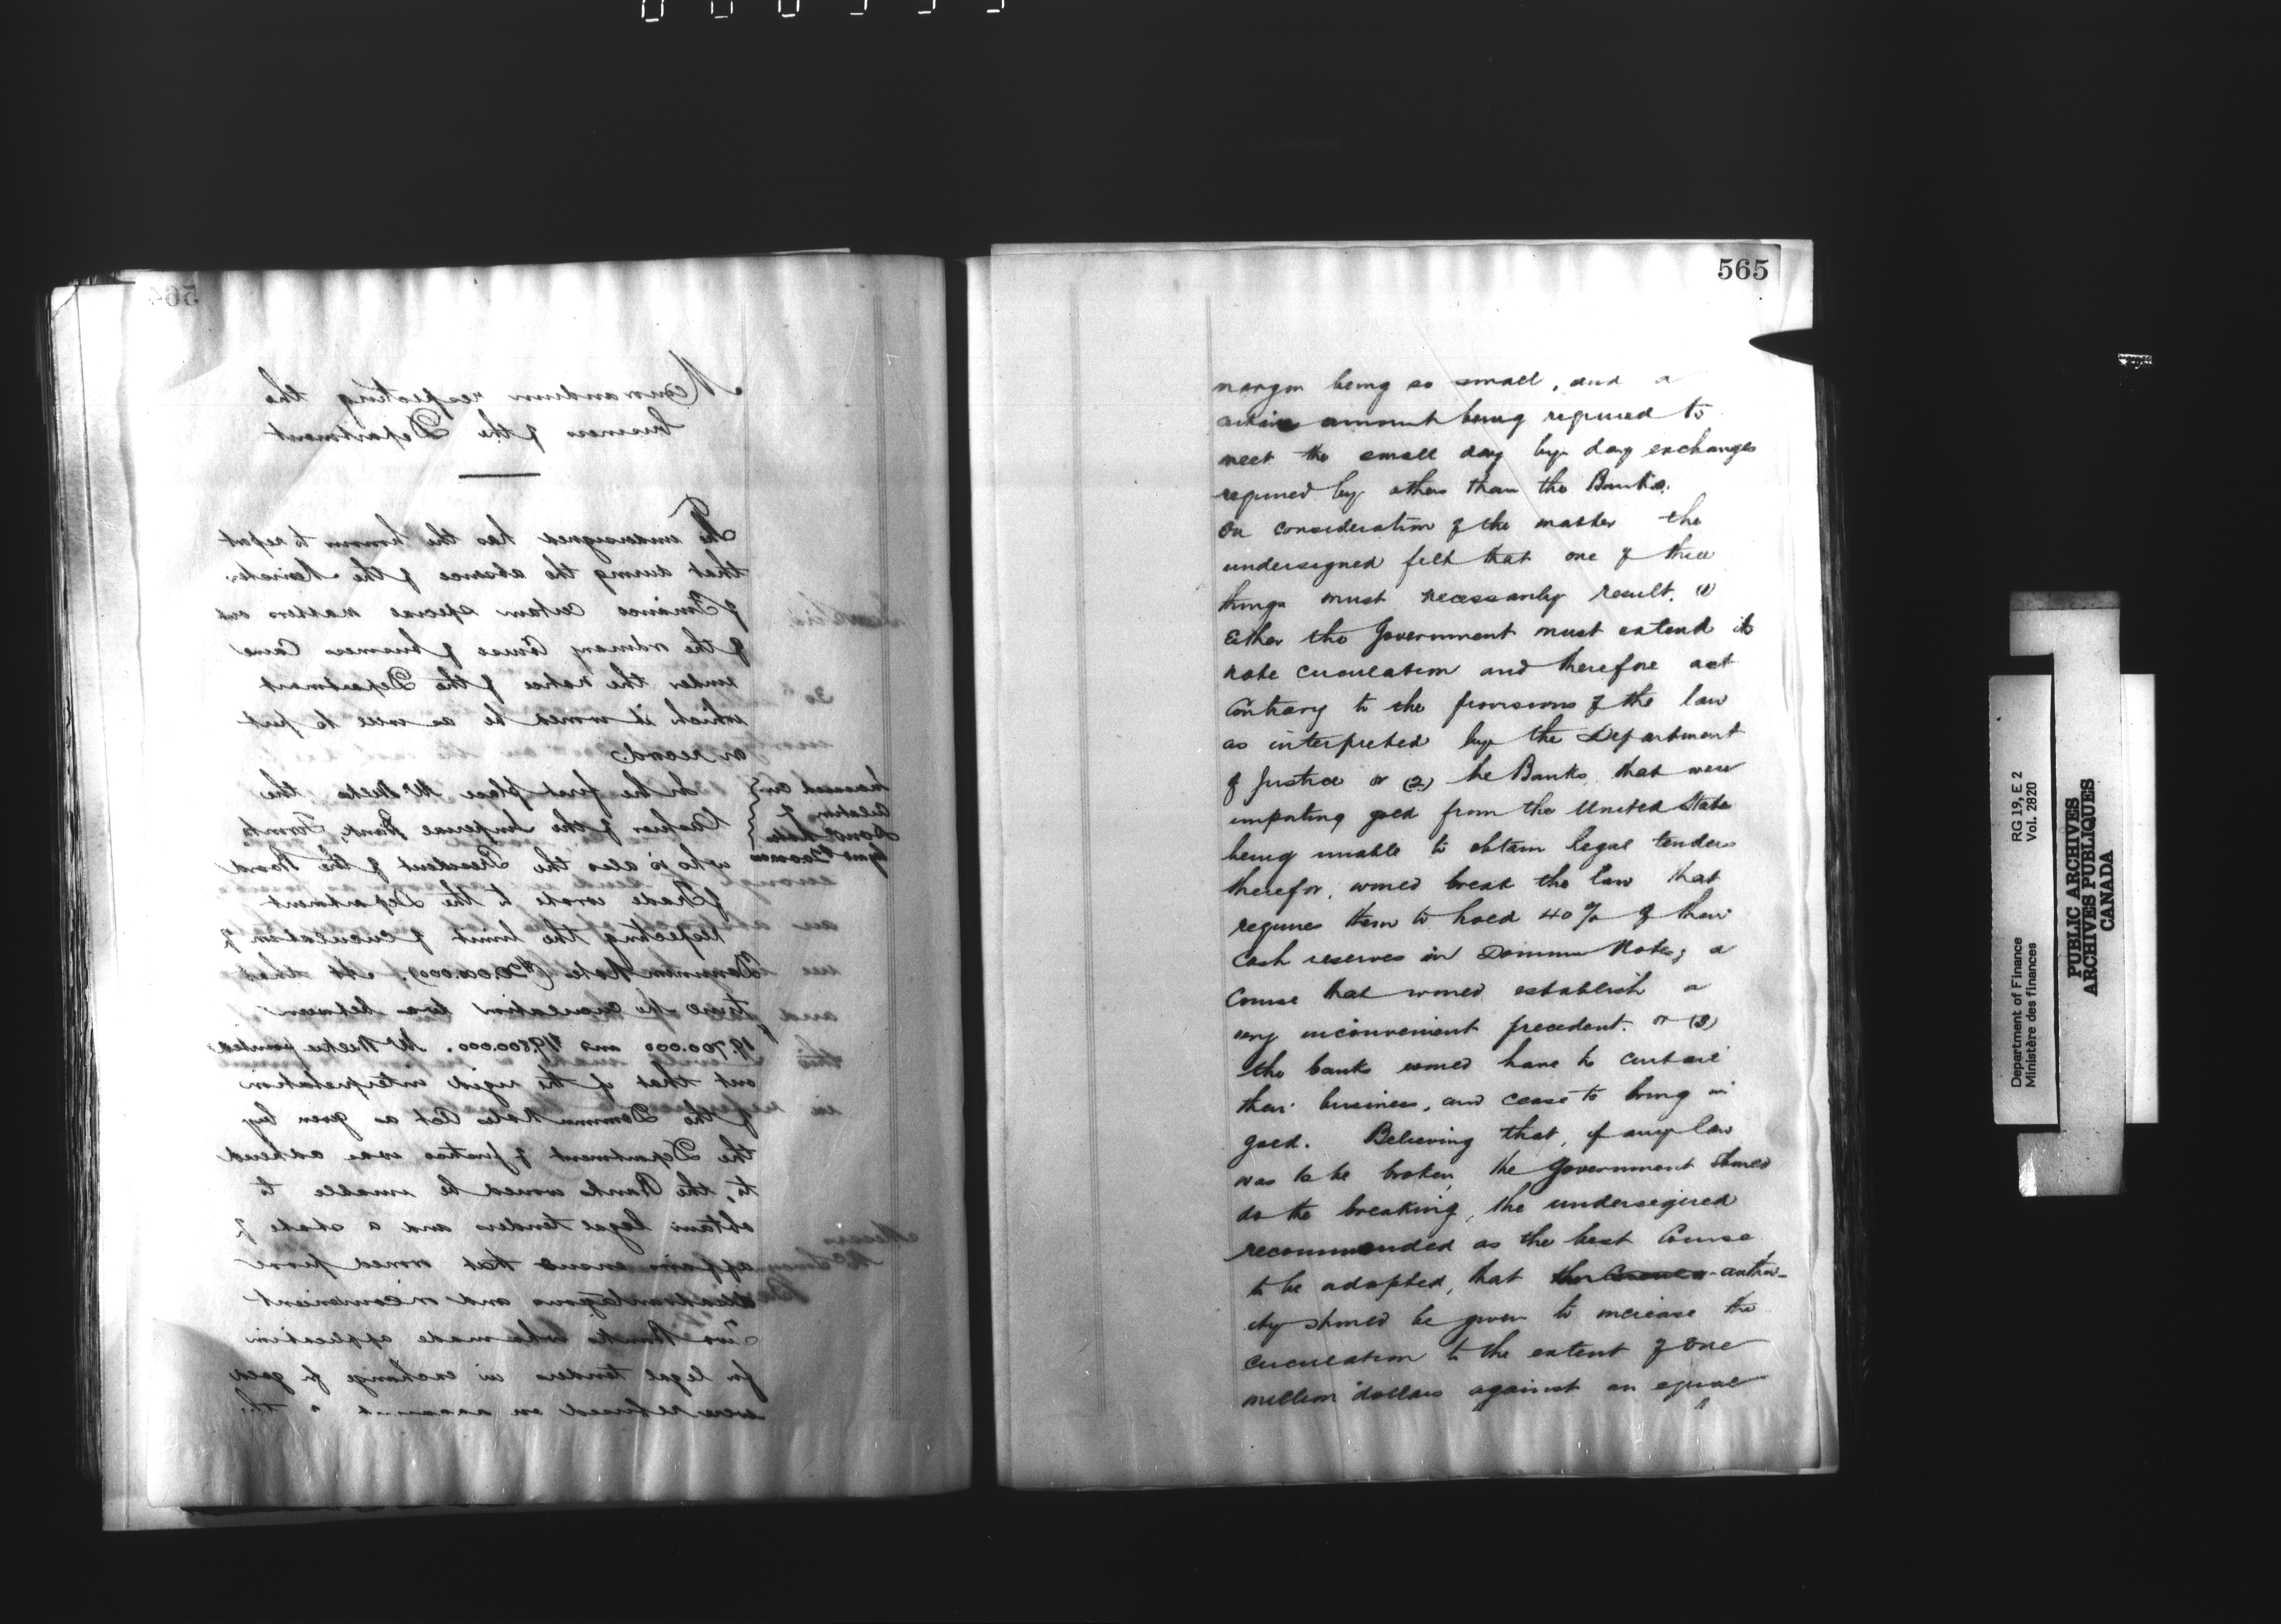 564
Memorandum respecting the
business of the Department
The undersigned has the honour to report
that during the absence of the Minister
of Finance certain special matters out
of the ordinary course of business came
under the notice of the Department
which it would be as well to put
on record.
Increased cir
culation of
Domn Notes
In the first place Mr Wilkie, the
Cashier of the Imperial Bank, Toronto,
who is also the President of the Board
of Trade wrote to the Department
respecting the limit of circulation of
Dominion Notes ($20.000.000). At that
time the circulation was between
19.700.000 and $19.800.000. Mr Wilkie pointed
out that if the rigid interpretation
of the Dominion Notes Act as given by
the Department of Justice was adhered
to, the Banks would be unable to
obtain legal tenders and a state of
affairs ensue that would prove
disadvantageous and inconvenient
Two Banks who made application
for legal tenders in exchange for gold
were refused on account of the
565
margin being so small, and a
certain amount being required to
meet the small day by day exchanges
required by others than the Banks.
On consideration of the matter the
undersigned felt that one of three
things must necessarily result. (1)
Either the Government must extend its
note circulation and therefore act
contrary to the provisions of the law
as interpreted by the Department
of Justice or (2) the Banks that were
importing gold from the United States
being unable to obtain legal tenders
therefor, would break the law that
requires them to hold 40% of their
cash reserves in Dominion Notes; a
course that would establish a
very inconvenient precedent. or (3)
the banks would have to curtail
their business, and cease to bring in
gold. Believing that, if any law
was to be broken, the Government should
do the breaking, the undersigned
recommended as the best course
to be adopted, that author-
ity should be given to increase the
circulation to the extent of one
million dollars against an equal
Department of Finance RG 19, E 2
Ministère des finances Vol. 2820
PUBLIC ARCHIVES
ARCHIVES PUBLIQUES
CANADA